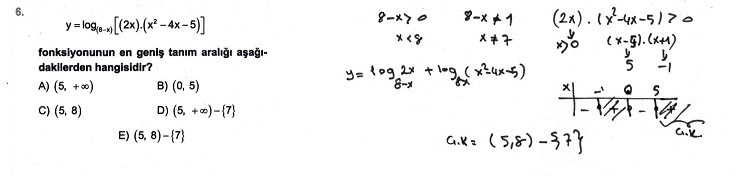 6.
y = log(8-x)[(2x).(x² - 4x - 5)]
fonksiyonunun en geniş tanım aralığı aşağı-
dakilerden hangisidir?
A) (5, +∞) B) (0, 5)
C) (5, 8) D) (5, +∞) - {7}
E) (5, 8) - {7}
8-x > 0 8-x ≠ 1 (2x) . (x²-4x-5) > 0
x < 8 x ≠ 7 x>0 (x-5).(x+1)
5 -1
y = log 2x + log (x²-4x-5)
8-x 8x
x -1 0 5
- + - +
Ç.K
Ç.K = (5,8) - {7}